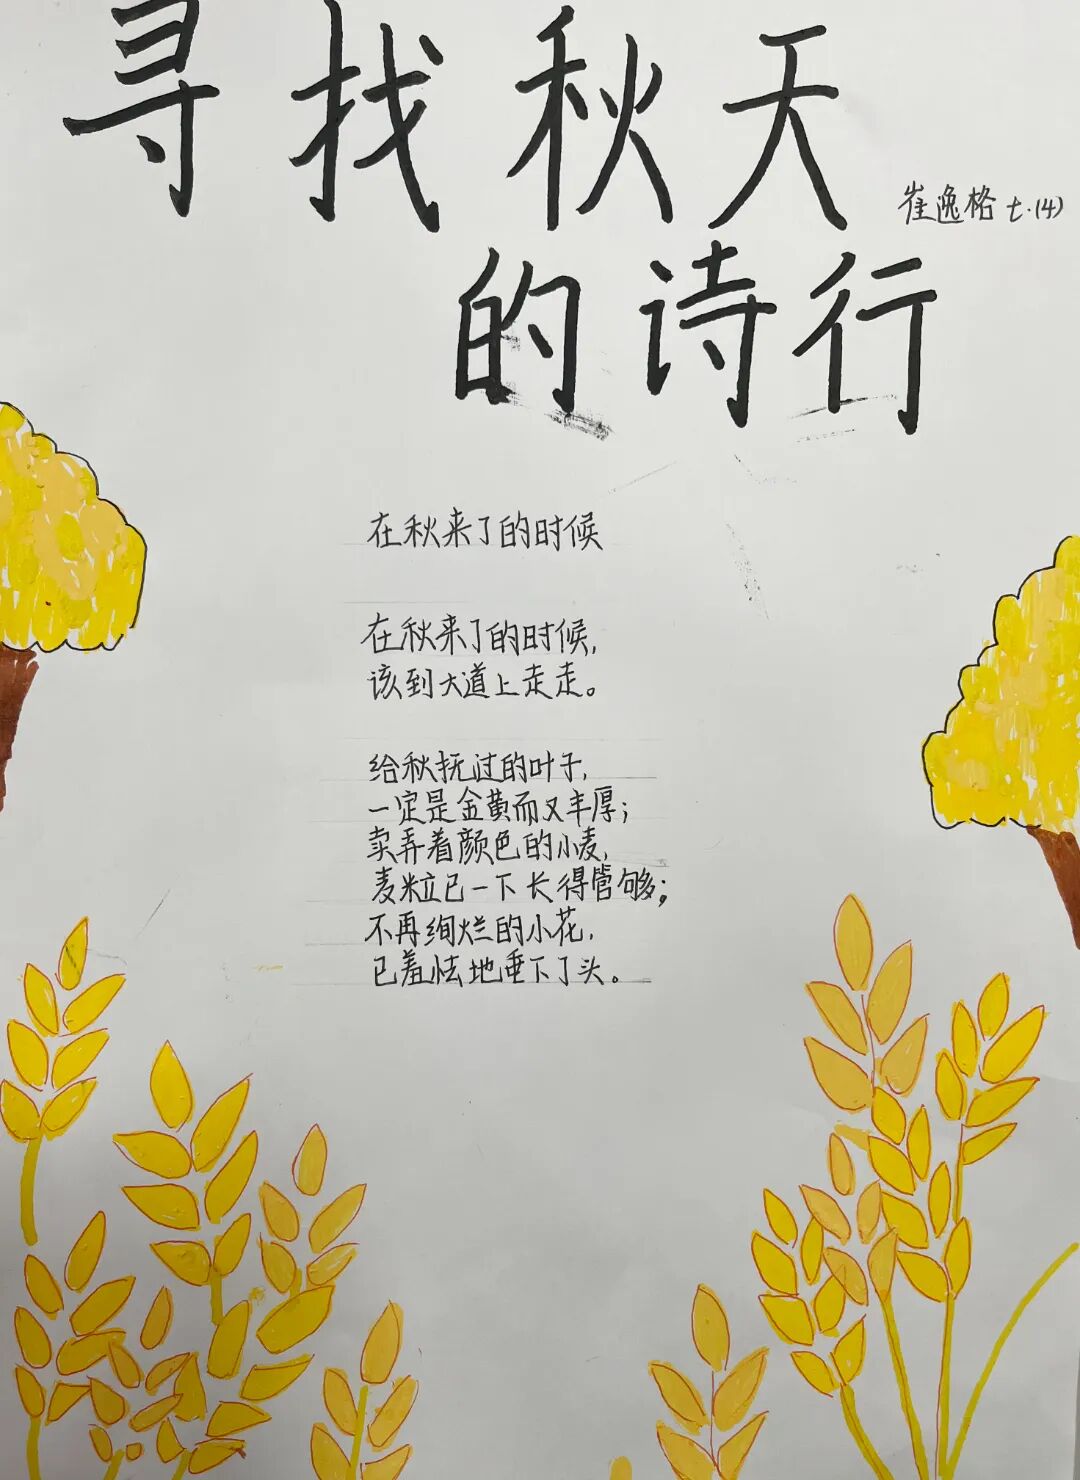 寻找秋天
的诗行
崔逸格 七.(4)
在秋来了的时候
在秋来了的时候,
该到大道上走走。
给秋抚过的叶子,
一定是金黄而又丰厚;
卖弄着颜色的小麦,
麦粒已一下长得管够;
不再绚烂的小花,
已羞怯地垂下了头。